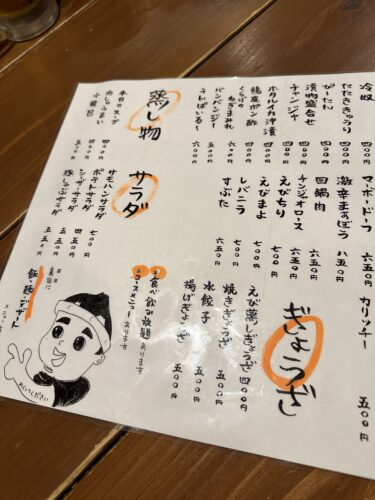 冷奴
たたききゅうり 四〇〇円
ぴーたん 四〇〇円
漬物盛合せ 四〇〇円
チャンジャ 四〇〇円
ホタルイカ沖漬 四〇〇円
鴨皮ポン酢 四〇〇円
くらげの
ねぎまみれ 六〇〇円
バンバンジー 六〇〇円
うんぱいろー
蒸し物
本日のスープ 四〇〇円
肉しゅうまい 四〇〇円
小籠包 五〇〇円
マーボードーフ 六五〇円
激辛まあぼう 八五〇円
回鍋肉 六五〇円
チンジャオロース 六五〇円
えびちり 七〇〇円
えびまよ 七〇〇円
レバニラ 七〇〇円
すぶた 六五〇円
サラダ
サモハンサラダ 七〇〇円
ポテトサラダ 四五〇円
シーザーサラダ 五五〇円
豚しゃぶサラダ 五五〇円
カリッチー 五〇〇円
ぎょうざ
えび蒸しぎょうざ 四〇〇円
焼きぎょうざ 五〇〇円
水餃子 五〇〇円
揚げぎょうざ 五〇〇円
食べ飲み放題あります
コースメニューあります
裏面に
飯・麺・デザート